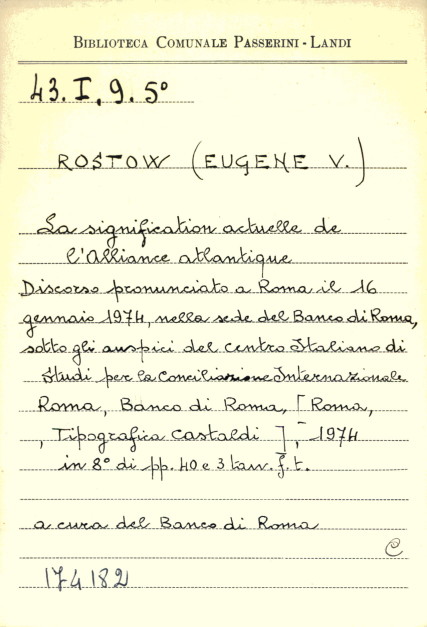 BIBLIOTECA COMUNALE PASSERINI - LANDI
43. I, 9. 5°
ROSTOW (EUGENE V.)
La signification actuelle de
l'Alliance atlantique
Discorso pronunciato a Roma il 16
gennaio 1974, nella sede del Banco di Roma,
sotto gli auspici del centro Italiano di
Studi per la Conciliazione Internazionale
Roma, Banco di Roma, [Roma,
, Tipografica Castaldi], 1974
in 8° di pp. 40 e 3 tav. f. t.
a cura del Banco di Roma
C
174182